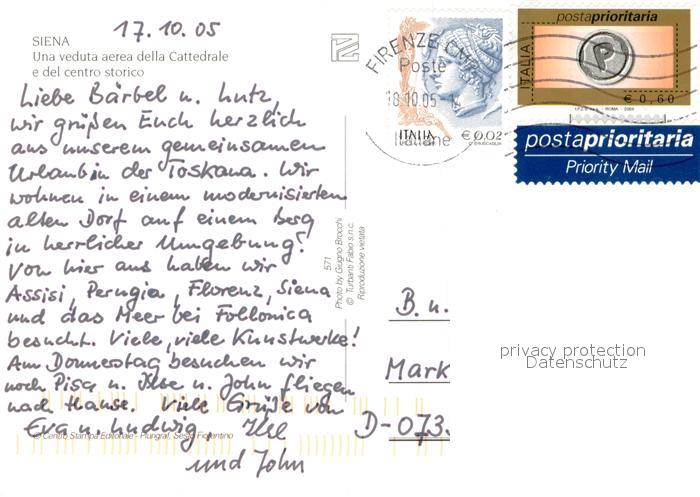 17.10.05
SIENA
Una veduta aerea della Cattedrale
e del centro storico
Liebe Bärbel u. Lutz,
wir grüßen Euch herzlich
aus unserem gemeinsamen
Urlaub in der Toskana. Wir
wohnen in einem modernisierten
alten Dorf auf einem Berg
in herrlicher Umgebung!
Von hier aus haben wir
Assisi, Perugia, Florenz, Siena
und das Meer bei Follonica
besucht. Viele, viele Kunstwerke!
Am Donnerstag besuchen wir
noch Pisa u. Ilse u. John fliegen
nach Hause. Viele Grüße von
Eva u. Ludwig, Ilse
und John
© Centro Stampa Editoriale - Plurigraf, Sesto Fiorentino
571
Photo by Giugno Brocchi
© Turbanti Fabio s.n.c.
Riproduzione vietata
FIRENZE
Poste
18.10.05
Italiane
ITALIA
€ 0,02
postaprioritaria
ITALIA
P
€ 0,60
postaprioritaria
Priority Mail
B. u.
Mark
D-073.
privacy protection
Datenschutz